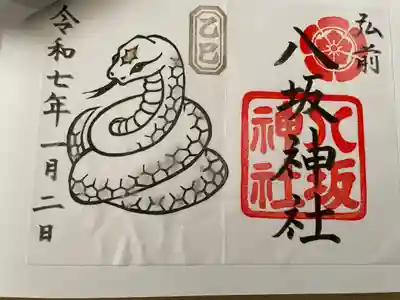 弘前
八坂神社
八坂神社
乙巳
令和七年一月二日